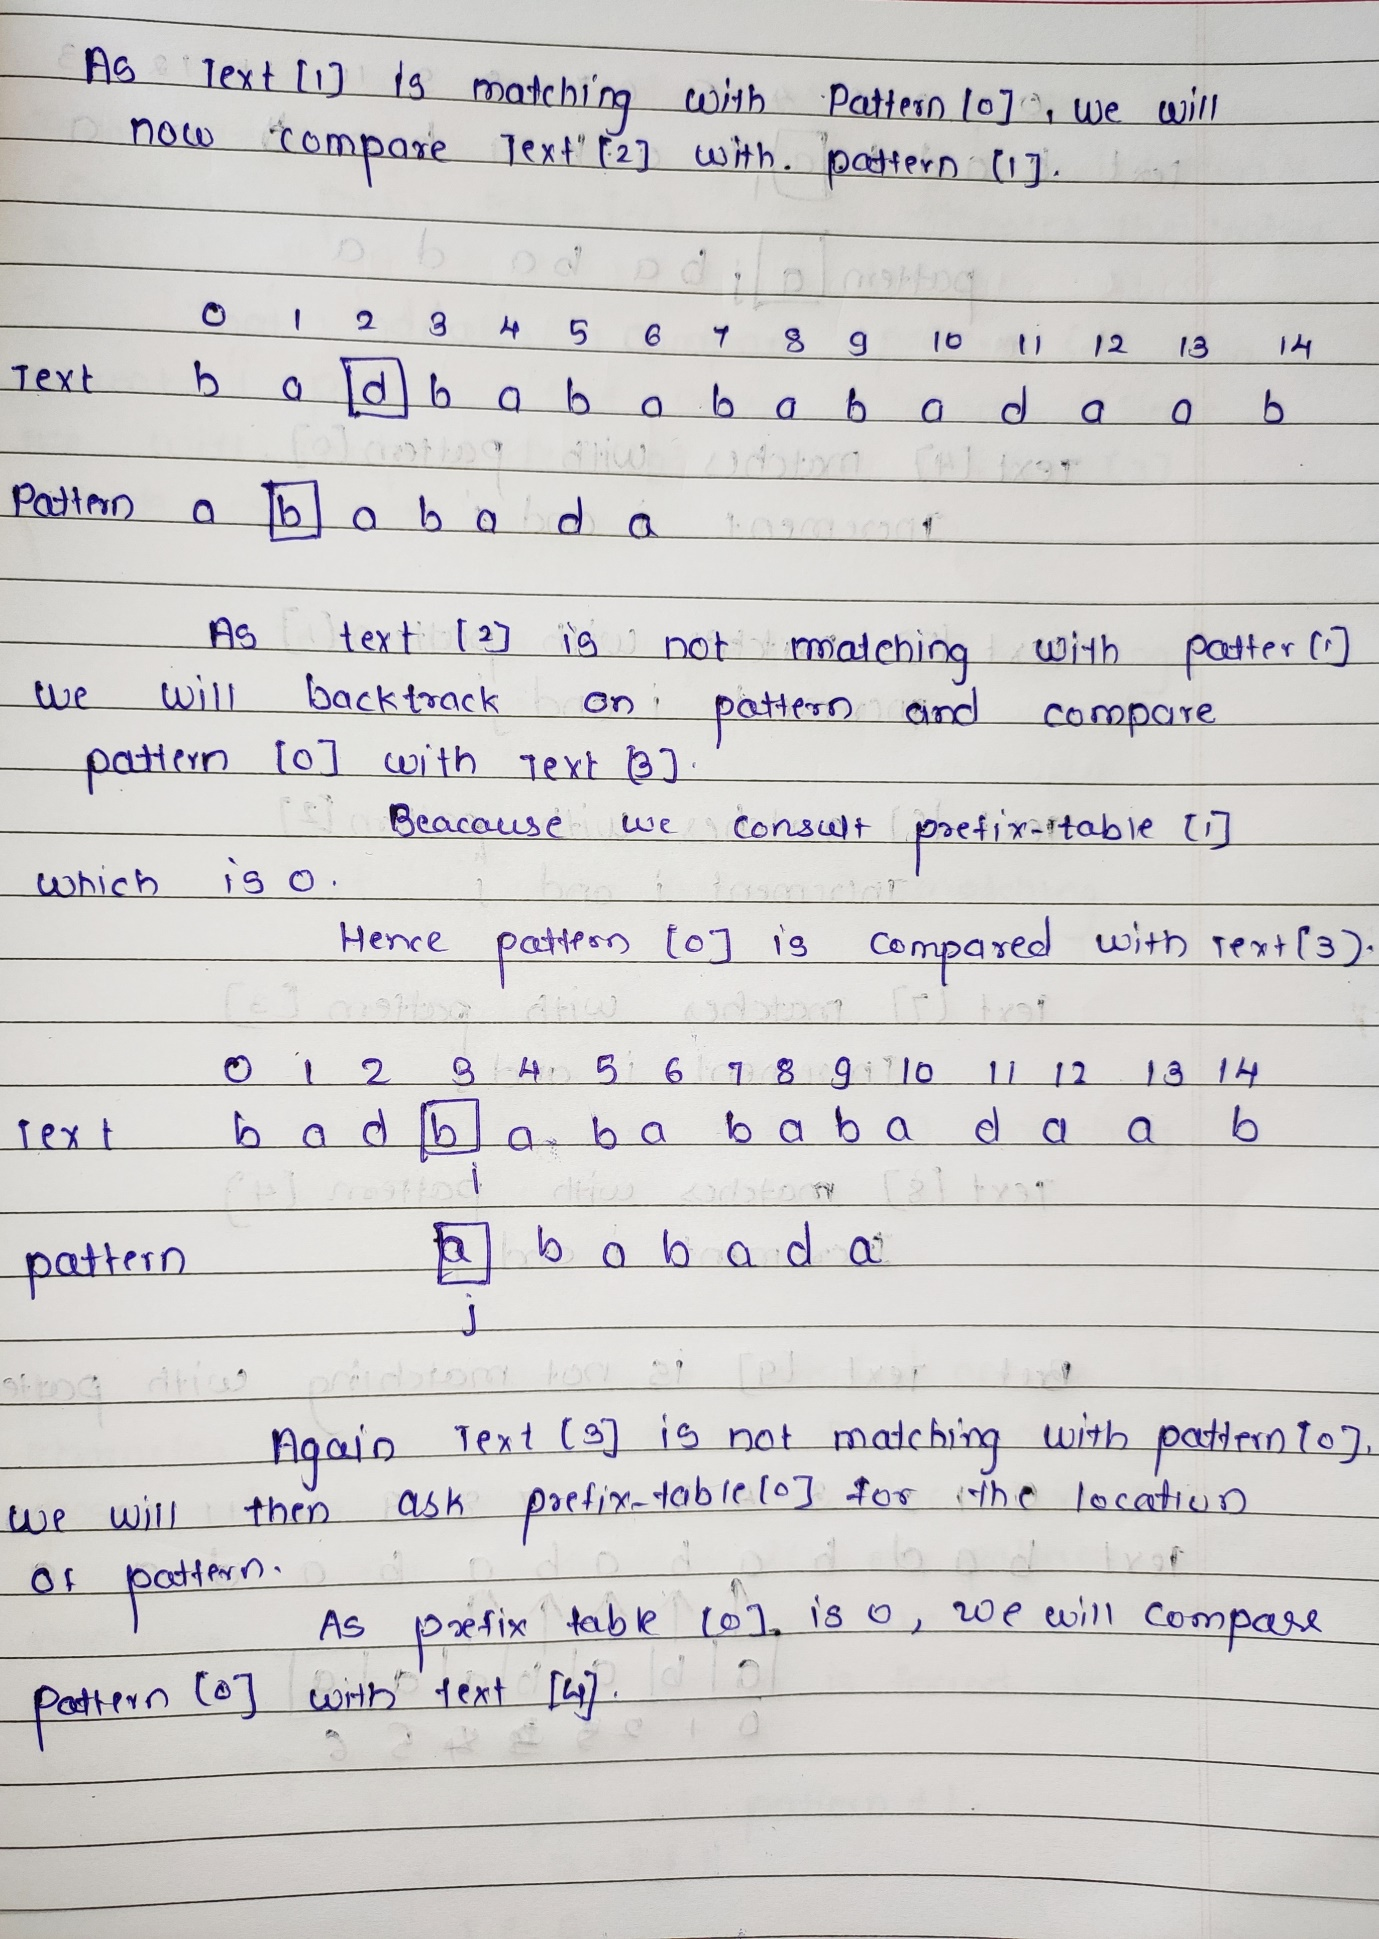 As Text [1] is matching with Pattern [0], we will
now compare Text [2] with pattern [1].
0 1 2 3 4 5 6 7 8 9 10 11 12 13 14
Text b a d b a b a b a b a d a a b
Pattern a b a b a d a
As text [2] is not matching with patter [1]
we will backtrack on pattern and compare
pattern [0] with Text [3].
Beacause we consult prefix-table [1]
which is 0.
Hence pattern [0] is compared with Text [3].
0 1 2 3 4 5 6 7 8 9 10 11 12 13 14
Text b a d b a b a b a b a d a a b
i
pattern a b a b a d a
j
Again Text [3] is not matching with pattern [0].
we will then ask prefix-table [0] for the location
of pattern.
As prefix table [0] is 0, we will compare
pattern [0] with text [4].